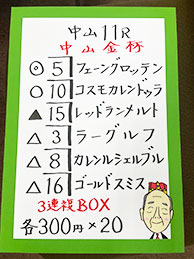 中山11R
中山金杯
◎ 5 フェーングロッテン
○ 10 コスモカレンドゥラ
▲ 15 レッドランメルト
△ 3 ラーグルフ
△ 8 カレンルシェルブル
△ 16 ゴールドスミス
3連複BOX
各300円×20